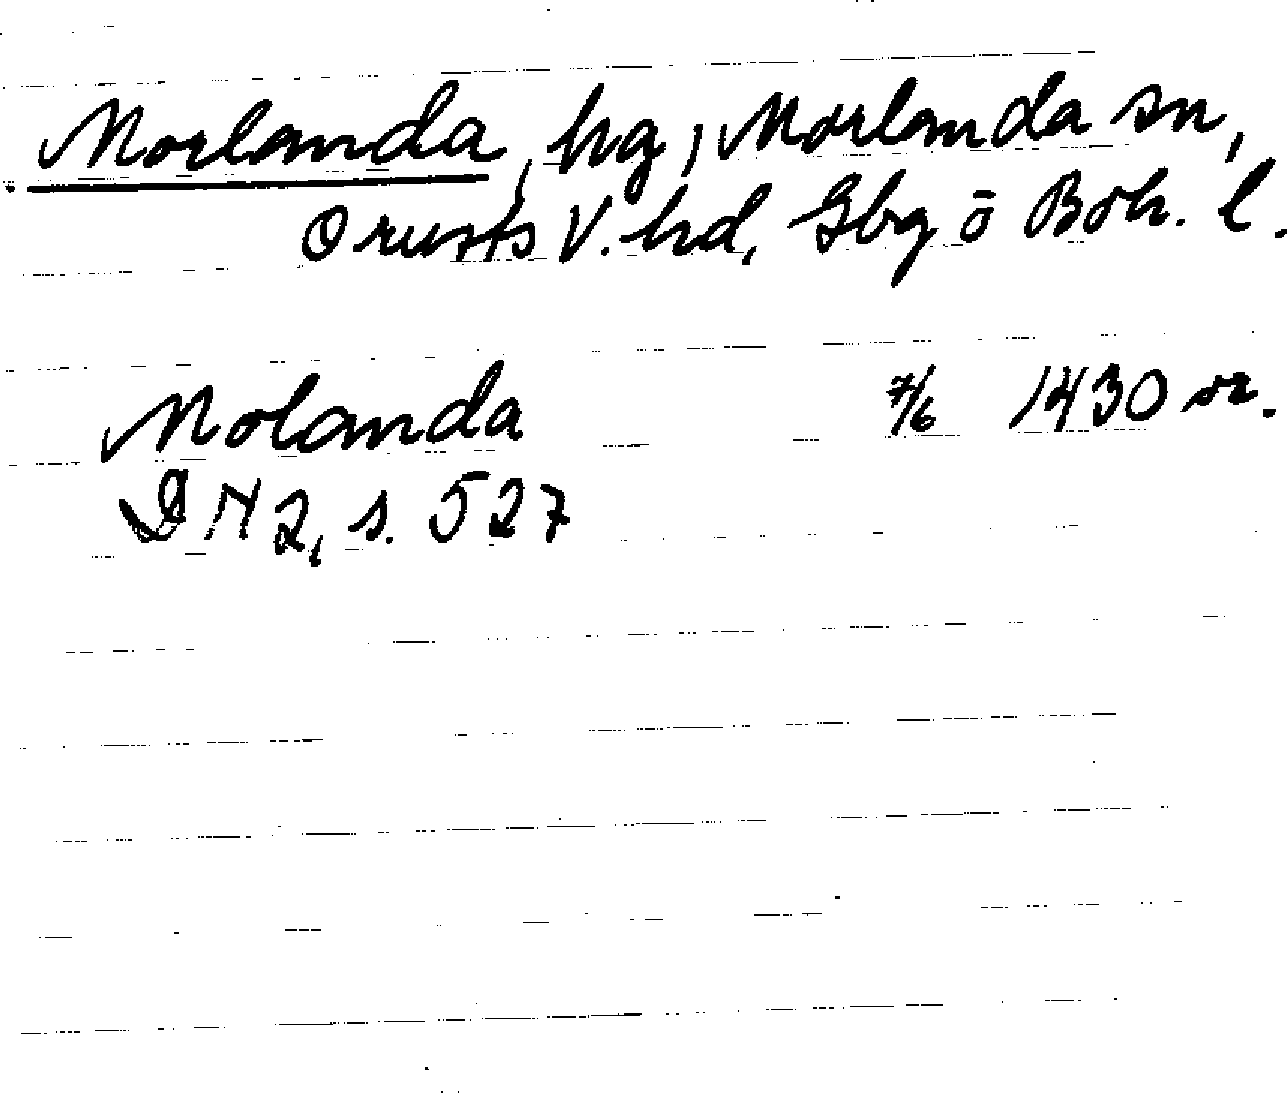 Morlanda, hg, Morlanda sn,
Orusts V. hd, Gbg ō Boh. l.
Molanda 7/6 1430 or.
DN 2, s. 527